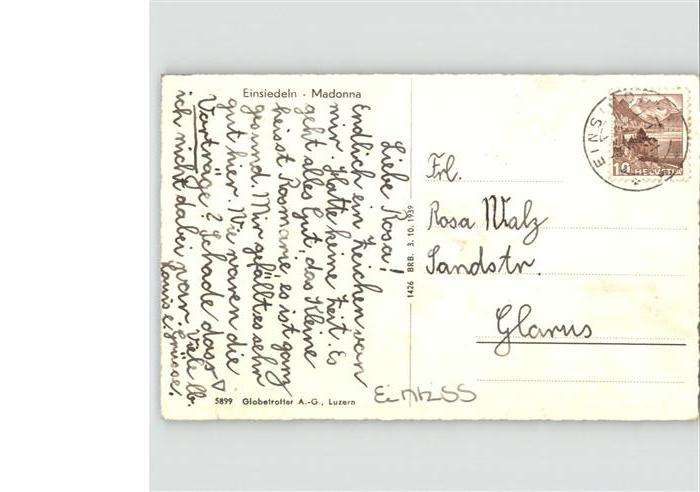 Einsiedeln - Madonna
Liebe Rosa!
Endlich ein Zeichen von
mir. Hatte keine Zeit. Es
geht alles Gut, das Kleine
heisst Rosmarie, es ist ganz
gesund. Mir gefällt es sehr
gut hier. Wie waren die
Vorträge? Schade dass
ich nicht dabei war. Viele lb.
Grüsse.
1426 BRB. 3. 10. 1939
5899 Globetrotter A.-G., Luzern
EINS
10
HELVETIA
Frl.
Rosa Malz
Sandstr.
Glarus